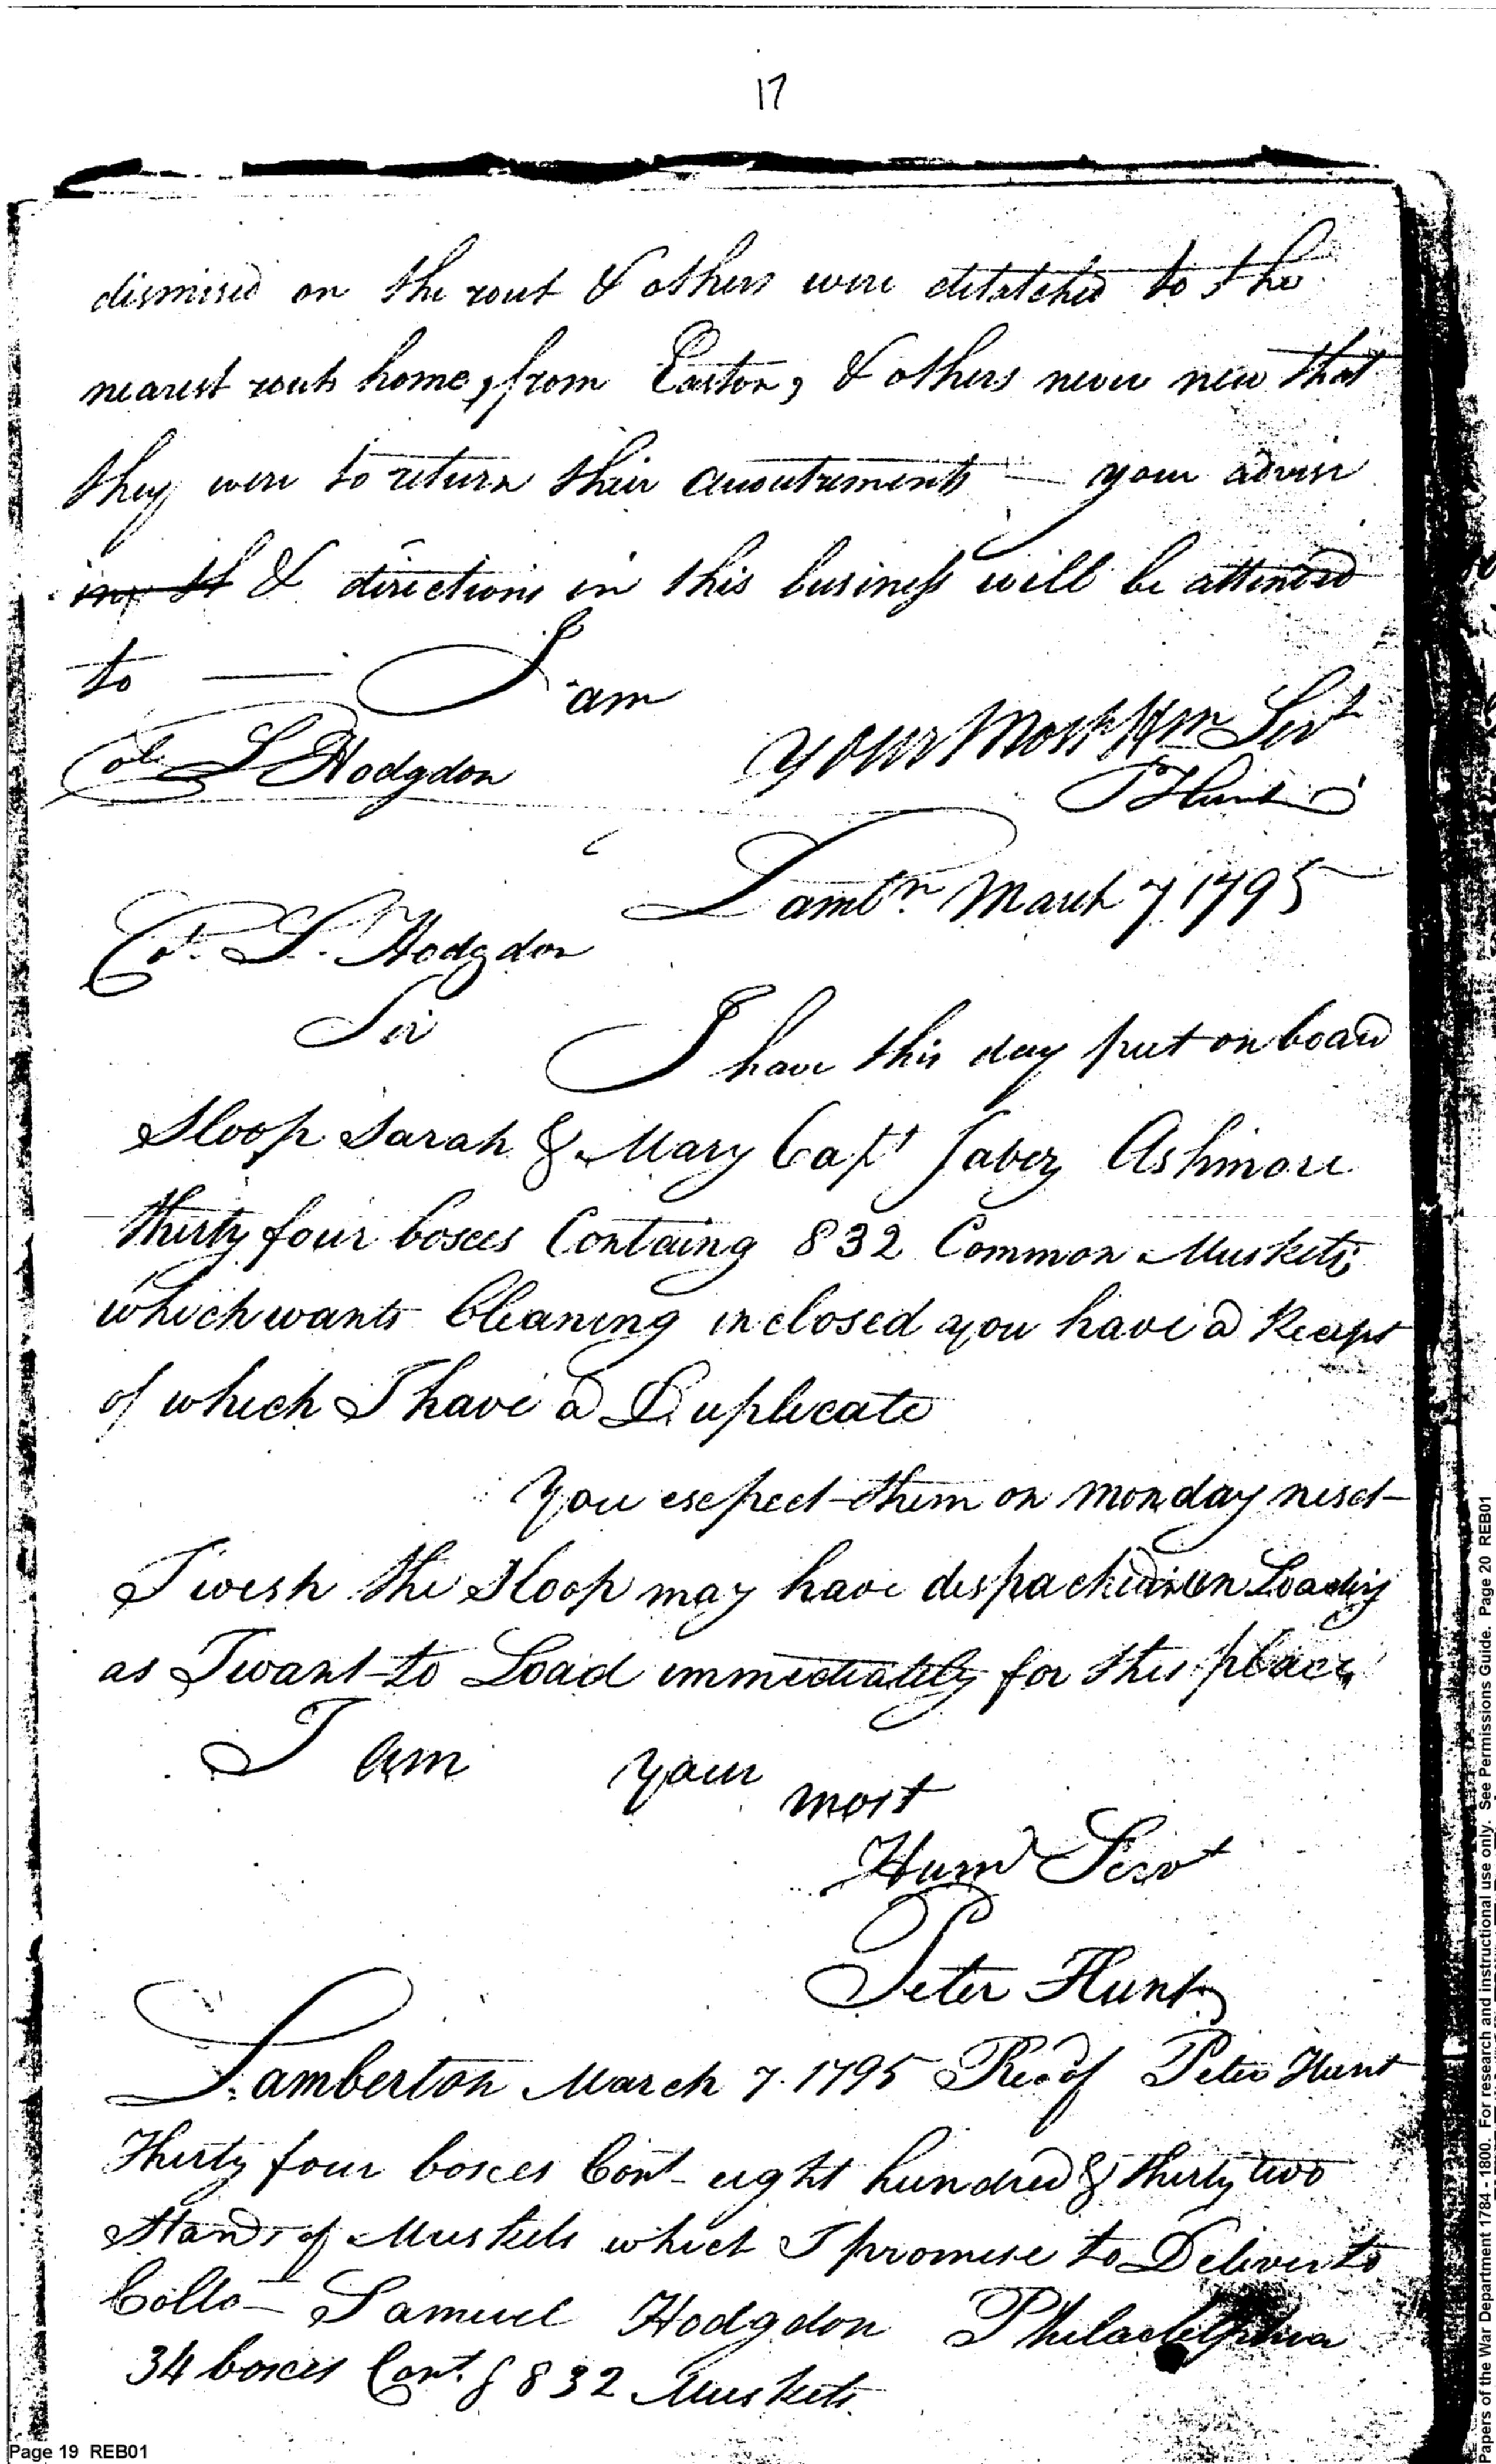 17
dismised on the rout & others were ditatched to the
nearest rout home, from Easton, & others never new that
they were to return their accoutrements — your advise
in th & directions in this business will be attended
to — I am
your Most Hm Servt
Col. S Hodgdon
P Hunt
Lambn. March 7 1795
Col. S. Hodgdon
Sir
I have this day put on board
Sloop Sarah & Mary Capt Jabez Ashmore
thirty four boxes Containg 832 Common Muskets
which wants Cleaning inclosed you have a Receipt
of which I have a Duplicate
you expect them on monday next
I wish the Sloop may have despach in Loading
as I want to Load immediately for this place
I am your
most
Hum Servt
Peter Hunt
Lamberton March 7. 1795 Recd of Peter Hunt
Thirty four boxes Cont eight hundred & thirty two
Stands of Muskets which I promise to Deliver to
Collo Samuel Hodgdon Philadelphia
34 boxes Cont. g 832 Muskets.
Page 19 REB01
Papers of the War Department 1784 - 1800. For research and instructional use only. See Permissions Guide. Page 20 REB01